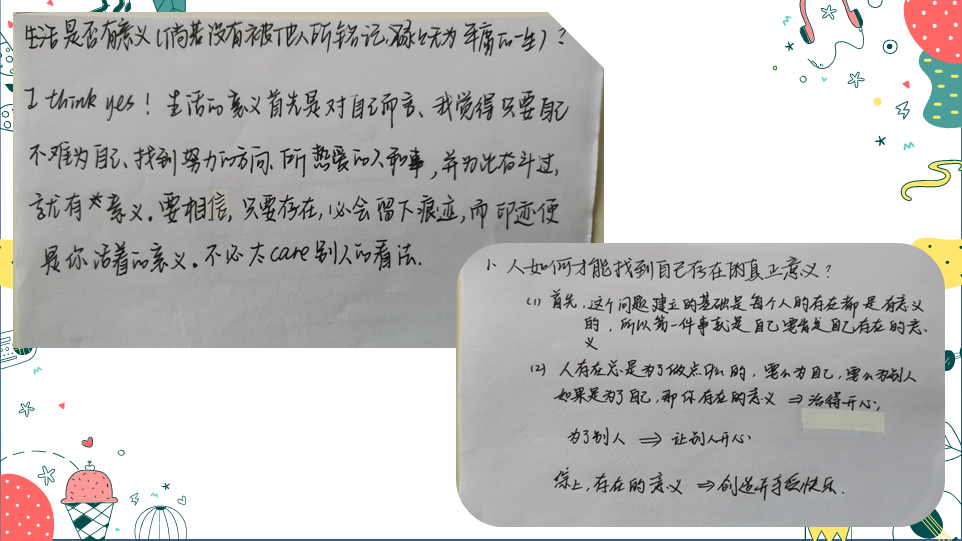 生活是否有意义(倘若没有被他人所铭记,碌碌无为平庸的一生)?
I think yes! 生活的意义首先是对自己而言、我觉得只要自己
不难为自己、找到努力的方向、所热爱的人和事,并为此奋斗过,
就有意义。要相信,只要存在,必会留下痕迹,而印迹便
是你活着的意义。不必太care别人的看法.
1、人如何才能找到自己存在的真正意义?
(1) 首先,这个问题建立的基础是每个人的存在都是有意义
的,所以第一件事就是自己要肯定自己存在的意
义
(2) 人存在总是为了做点什么的,要么为自己,要么为别人
如果是为了自己,那你存在的意义 ⇒ 活得开心;
为了别人 ⇒ 让别人开心.
综上,存在的意义 ⇒ 创造并享受快乐.